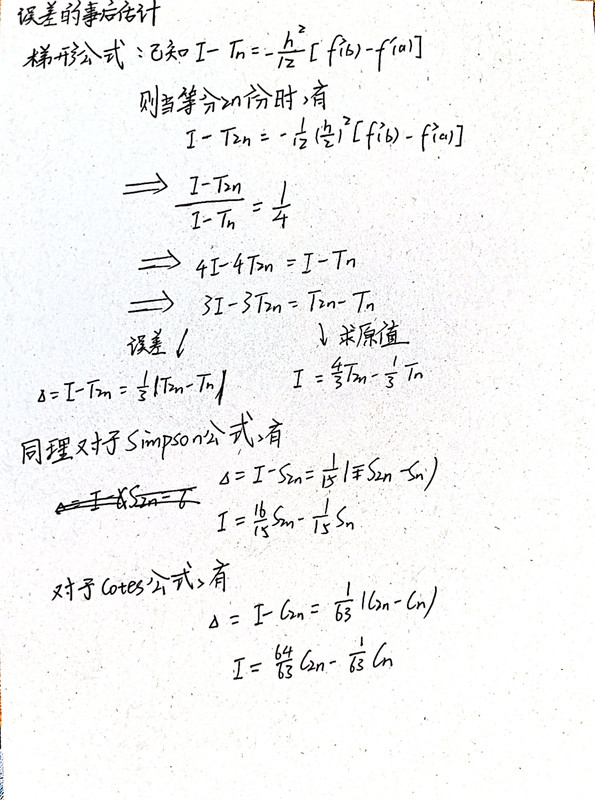 误差的事后估计
梯形公式：已知 I - Tn = -h²/12 [f'(b) - f'(a)]
则当等分2n份时，有
I - T2n = -1/12 (h/2)² [f'(b) - f'(a)]
⟹ (I - T2n)/(I - Tn) = 1/4
⟹ 4I - 4T2n = I - Tn
⟹ 3I - 3T2n = T2n - Tn
误差 ↓ ↓ 求原值
Δ = I - T2n = 1/3 |T2n - Tn| I = 4/3 T2n - 1/3 Tn
同理对于Simpson公式，有
Δ = I - S2n = 1/15 |S2n - Sn|
I = 16/15 S2n - 1/15 Sn
对于Cotes公式，有
Δ = I - C2n = 1/63 |C2n - Cn)
I = 64/63 C2n - 1/63 Cn